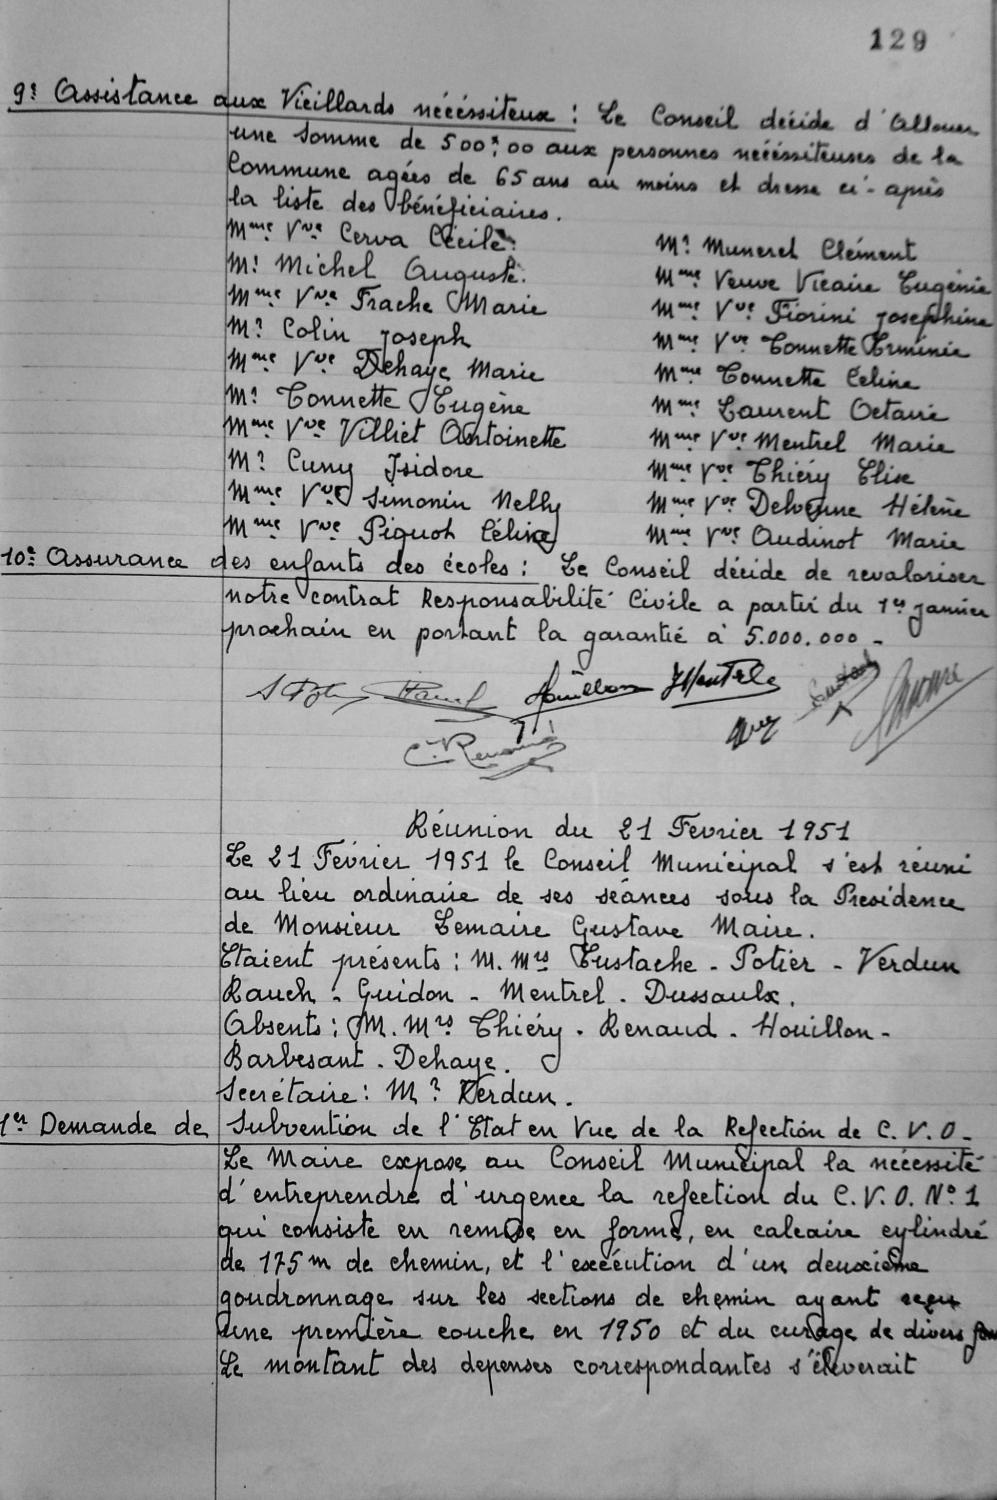 129
9º Assistance aux Vieillards nécéssiteux : Le Conseil décide d'Allouer
une somme de 500f,00 aux personnes nécéssiteuses de la
Commune agées de 65 ans au moins et dresse ci-après
la liste des bénéficiaires.
Mme Vve Cerva Cécile
Mr Michel Auguste.
Mme Vve Frache Marie
Mr Colin Joseph
Mme Vve Dehaye Marie
Mr Tonnette Eugène
Mme Vve Villiet Antoinette
Mr Cuny Isidore
Mme Vve Simonin Nelly
Mme Vve Piquot Céline
Mr Munerel Clément
Mme Veuve Vicaire Eugénie
Mme Vve Fiorini Josephine
Mme Vve Tonnette Erminée
Mme Tonnette Céline
Mme Laurent Octavie
Mme Vve Mentrel Marie
Mme Vve Thiéry Elise
Mme Vve Delvenne Hélène
Mme Vve Audinot Marie
10º Assurance des enfants des écoles : Le Conseil décide de revaloriser
notre contrat Responsabilité Civile a partir du 1er janvier
prochain en portant la garantie à 5.000.000 -
Houillon JMentrel
C. Renaud
Réunion du 21 Fevrier 1951
Le 21 Février 1951 le Conseil Municipal s'est réuni
au lieu ordinaire de ses séances sous la Presidence
de Monsieur Lemaire Gustave Maire.
Etaient présents : M. Mrs Eustache - Potier - Verdun
Rauch - Guidon - Mentrel - Dussaulx.
Absents : M. Mrs Thiéry - Renaud - Houillon -
Barbesant - Dehaye.
Secrétaire : Mr Verdun.
1er Demande de Subvention de l'Etat en Vue de la Refection de C.V.O-
Le Maire expose au Conseil Municipal la nécessité
d'entreprendre d'urgence la refection du C.V.O. Nº 1
qui consiste en remise en forme, en calcaire cylindré
de 175 m de chemin, et l'exécution d'un deuxième
goudronnage sur les sections de chemin ayant reçu
une première couche en 1950 et du curage de divers
Le montant des depenses correspondantes s'éleverait